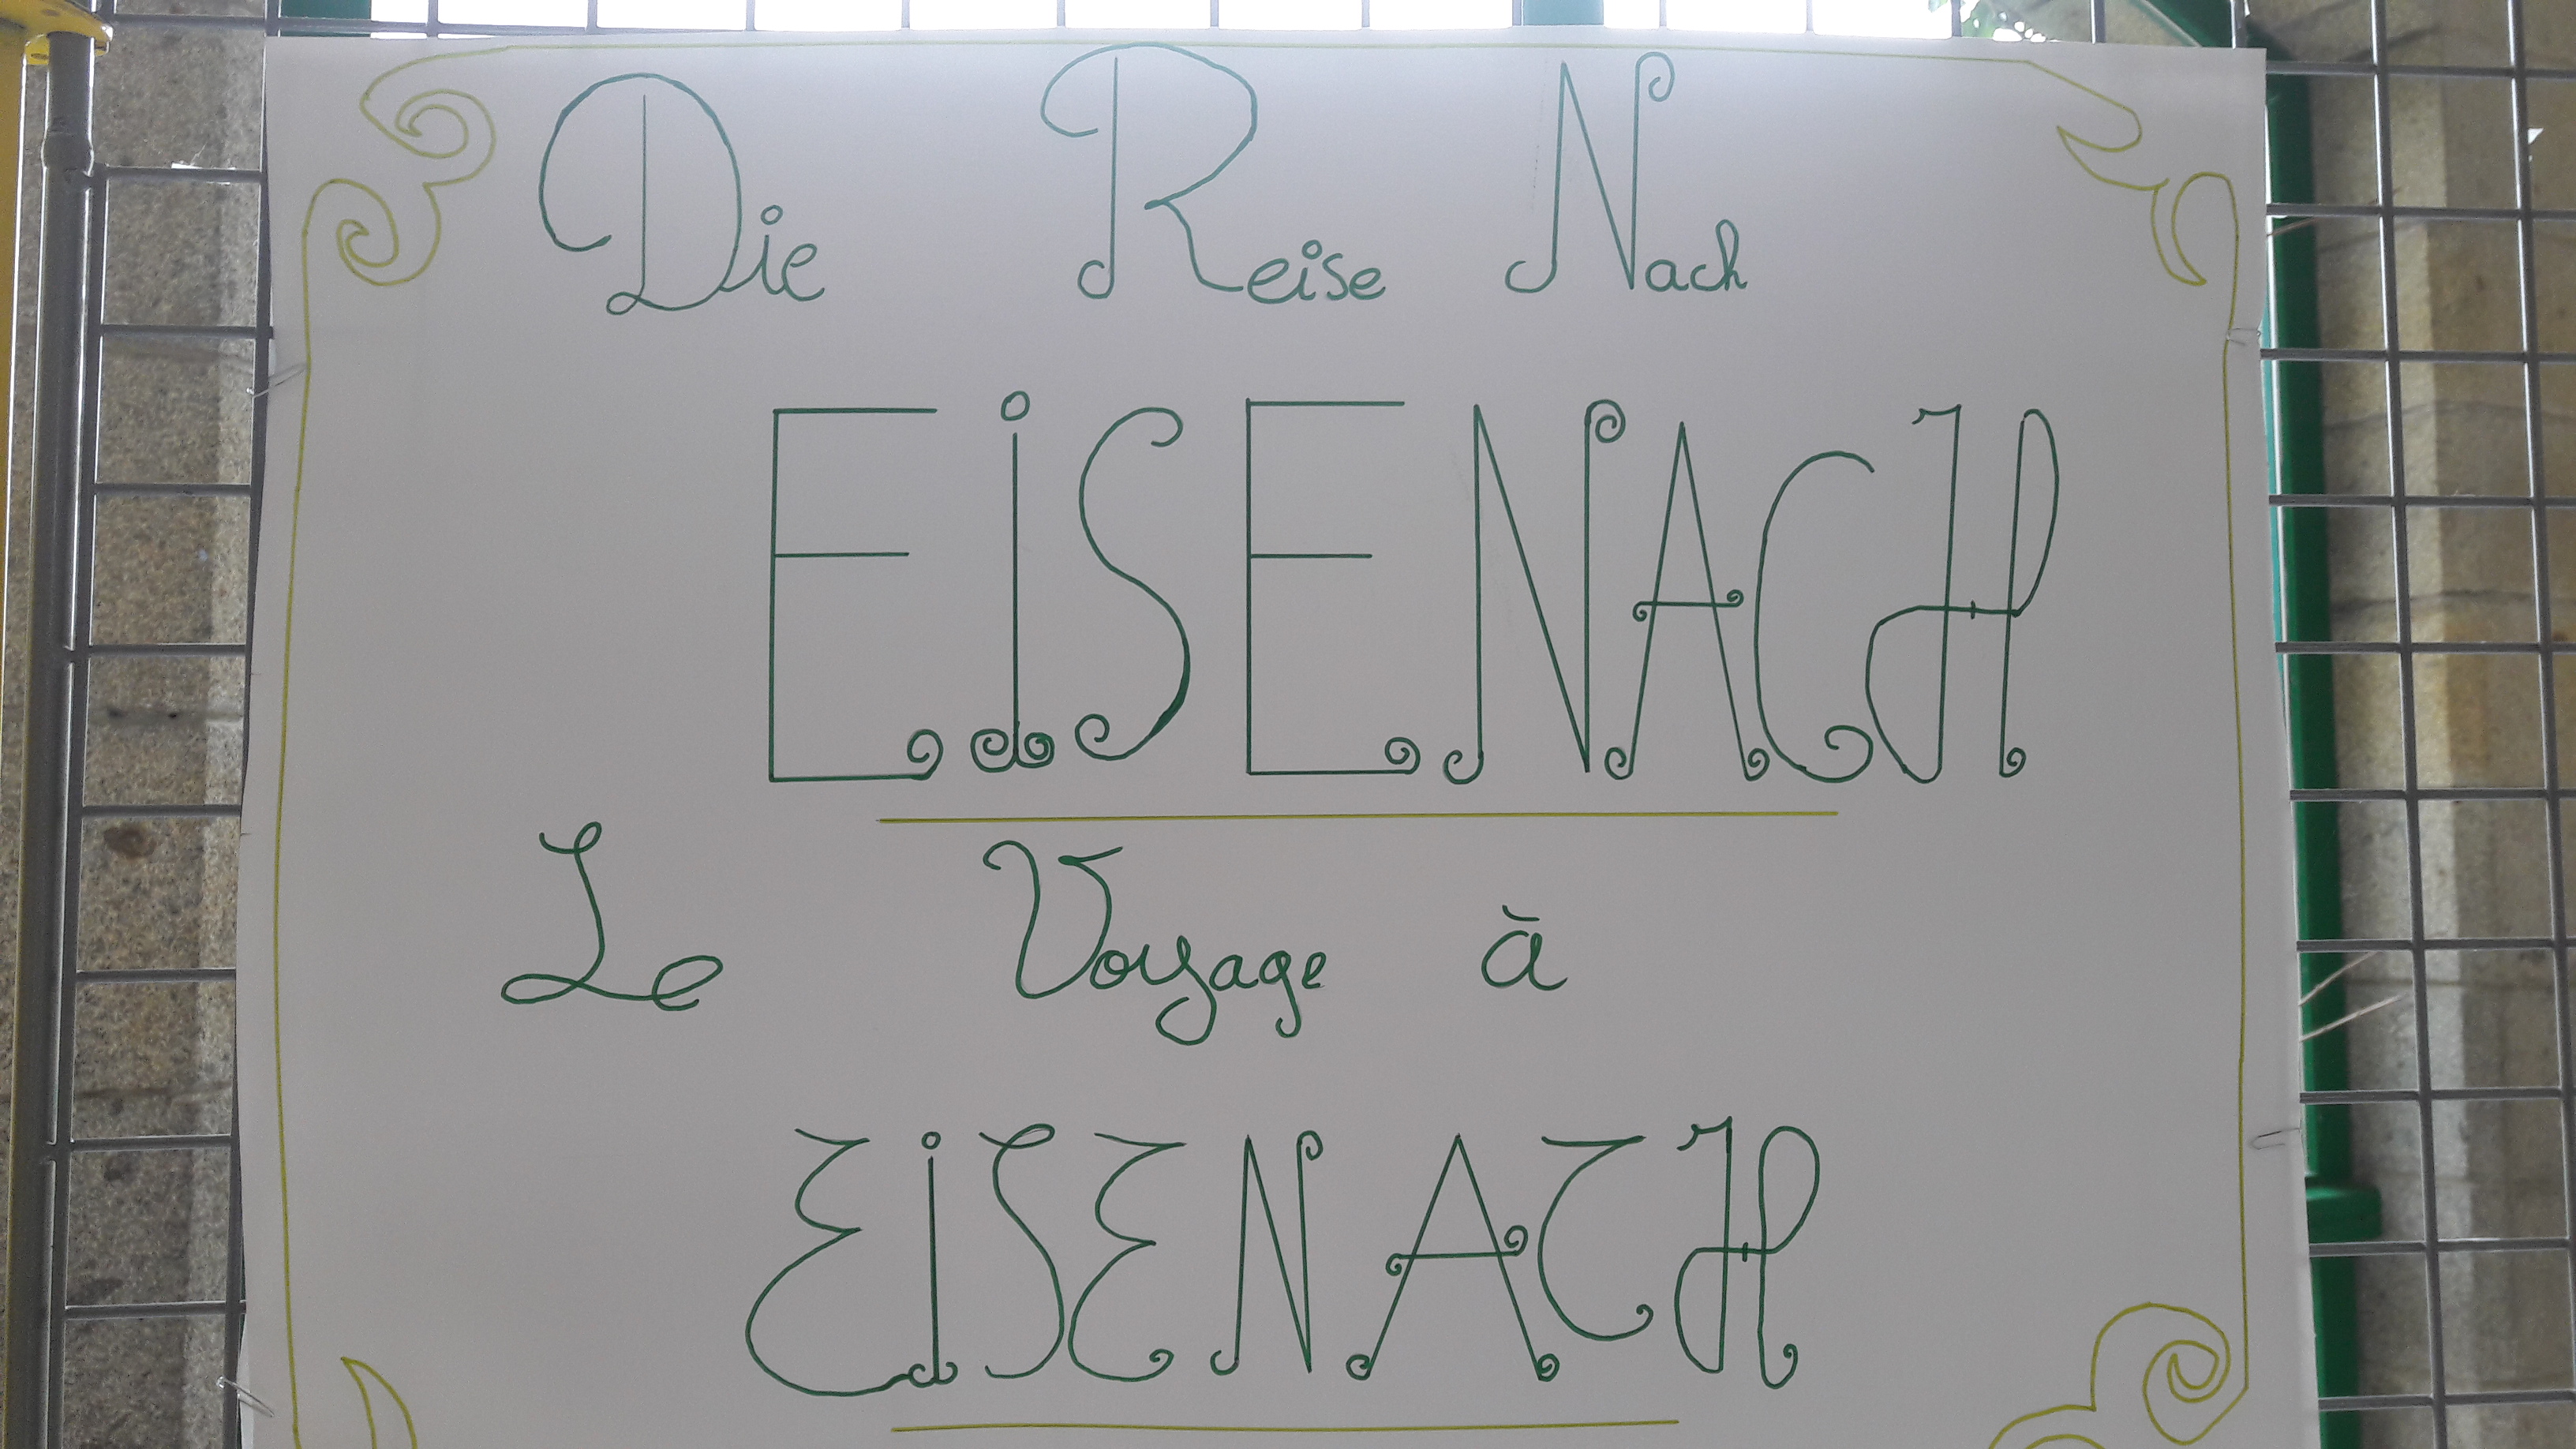 Die Reise Nach
EiSENACH
Le Voyage à
EiSENACH